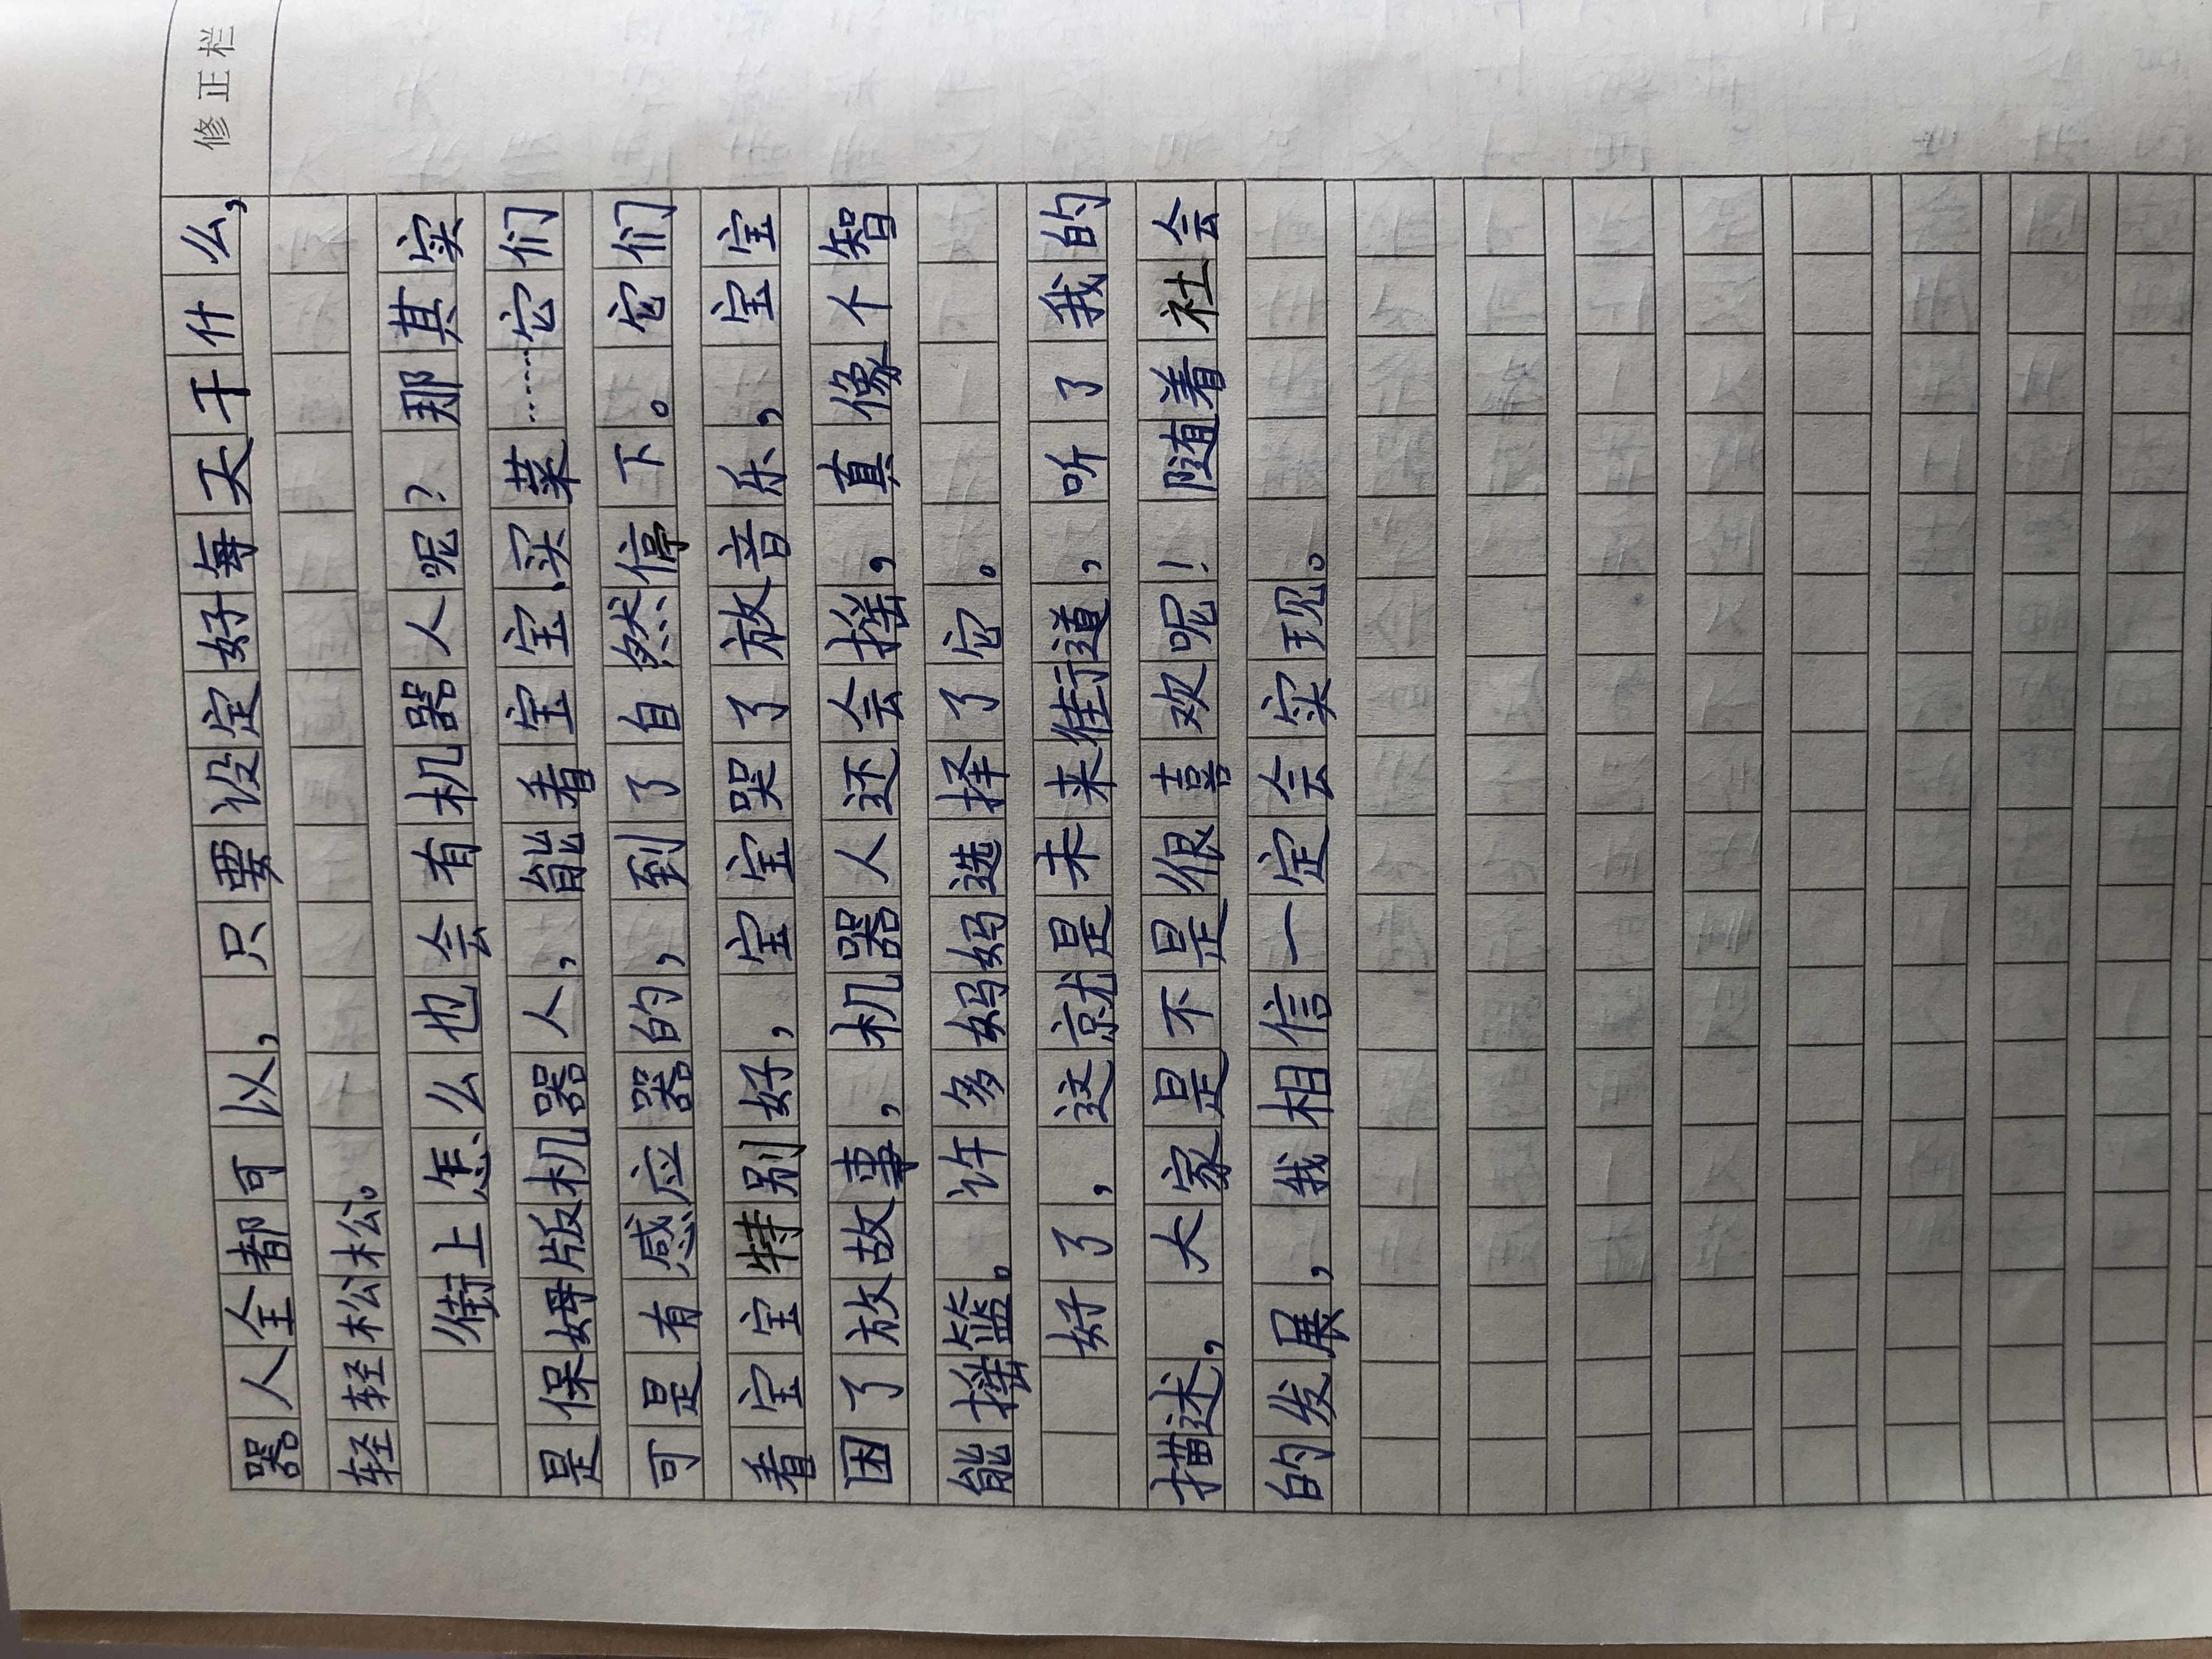 修正栏
器人全都可以，只要设定好每天干什么，
轻轻松松。
街上怎么也会有机器人呢？那其实
是保姆版机器人，能看宝宝、买菜……它们
可是有感应器的，到了自然停下。它们
看宝宝特别好，宝宝哭了放音乐，宝宝
困了放故事，机器人还会摇，真像个智
能摇篮。许多妈妈选择了它。
好了，这就是未来街道，听了我的
描述，大家是不是很喜欢呢！随着社会
的发展，我相信一定会实现。